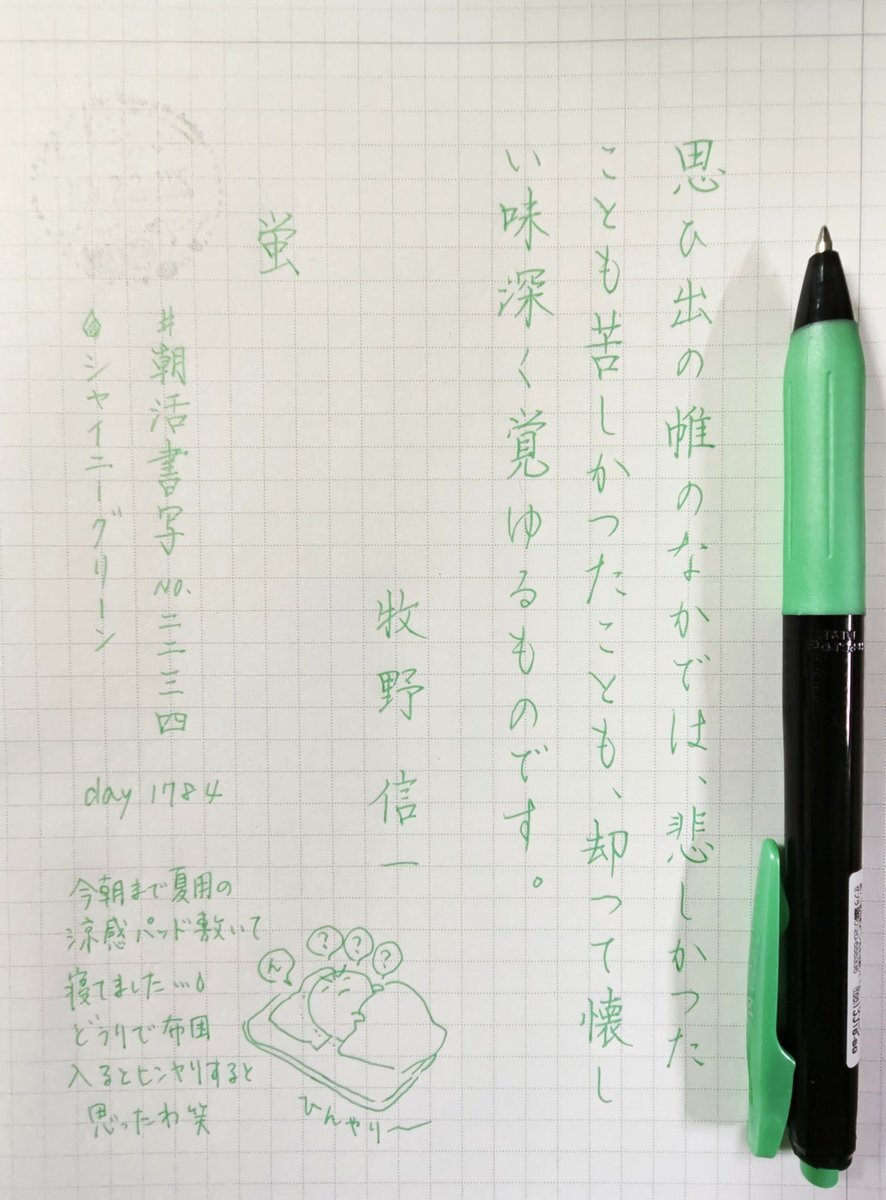 思ひ出の帷のなかでは、悲しかつた
ことも苦しかつたことも、却つて懐し
い味深く覚ゆるものです。
牧野 信一
蛍
#朝活書写 NO.二二三四
シャイニーグリーン
day 1784
今朝まで夏用の
涼感パッド敷いて
寝てました…
どうりで布団
入るとヒンヤリすると
思ったわ笑
ん
?
?
?
ひんやり〜